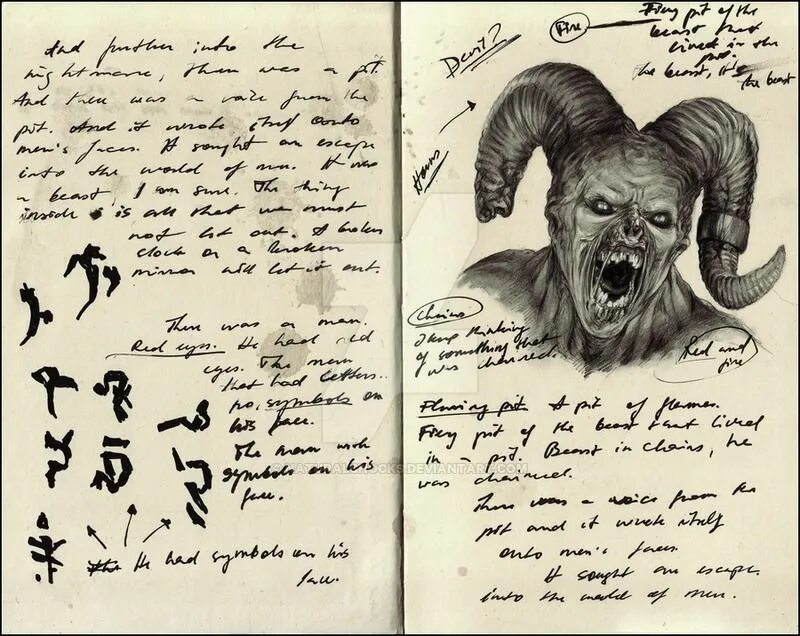 And further into the
nightmare, there was a pit.
And there was a voice from the
pit. And it wrote itself onto
men's faces. It sought an escape
into the world of men. It was
a beast I am sure. The thing
inside is all that we must
not let out. A broken
clock or a broken
mirror will let it out.
There was a man.
Red eyes. He had red
eyes. The man
that had letters..
no, symbols on
his face.
The man with
symbols on his
face.
He had symbols on his
face.
Devil?
Fire
Fiery pit of the
beast that
lived in the
pit.
the beast, it's
the beast
Horns
Chains
I keep thinking
of something that
was chained.
Red and
fire
Flaming pit A pit of flames.
Fiery pit of the beast that lived
in a pit. Beast in chains, he
was chained.
There was a voice from the
pit and it wrote itself
onto men's faces
It sought an escape
into the world of men.